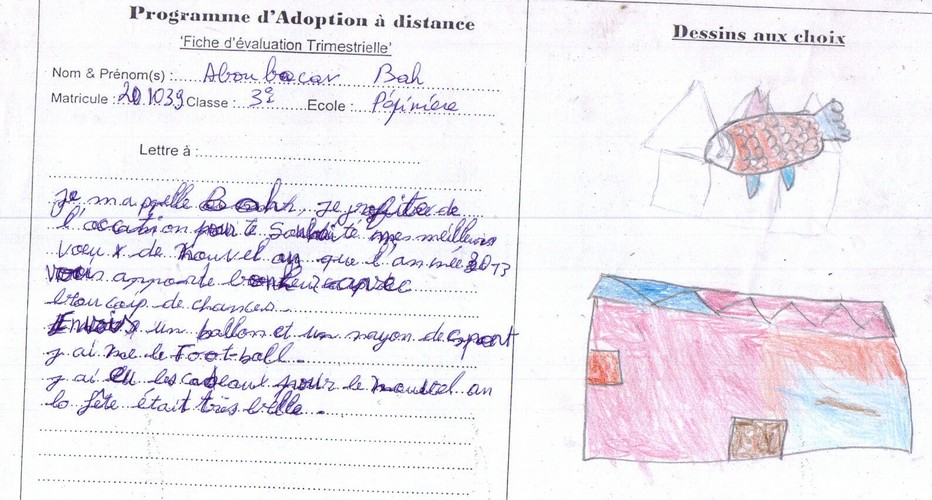 Programme d'Adoption à distance
'Fiche d'évaluation Trimestrielle'
Nom & Prénom(s) : Aboubacar Bah
Matricule : 201039 Classe : 3e Ecole : Pépiniere
Lettre à :
je m'apelle Bah, je profite de
l'occation pour te Souhaité mes meilleurs
voeux de nouvel an que l'année 2013
vous apporte bonheur avec
beaucoip de chances.
Envois un ballon et un mayon de sport
j'aime le Foot-ball.
j'ai eu les cadeaux pour le nouvel an
la fête était très belle.
Dessins aux choix